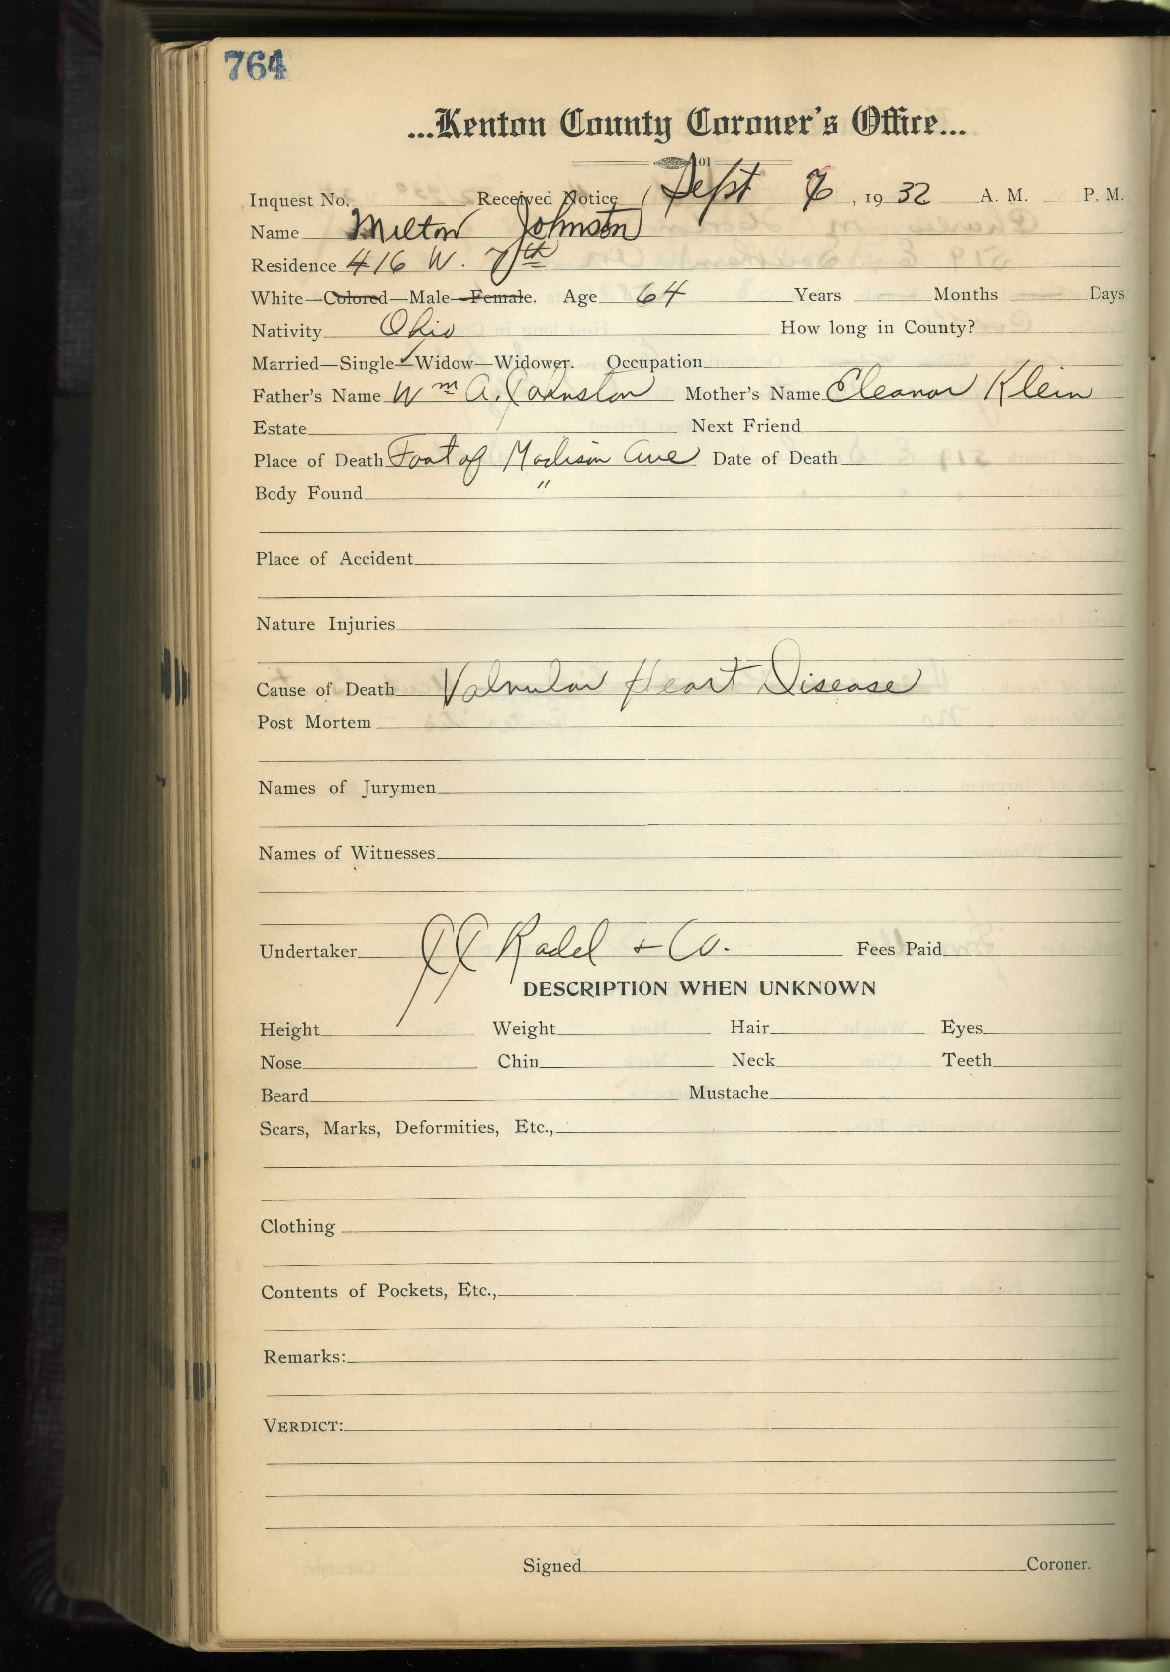 764
...Kenton County Coroner's Office...
101
Inquest No. Received Notice Sept 6, 1932 A. M. P. M.
Name Milton Johnston
Residence 416 W. 7th
White—Colored—Male—Female. Age 64 Years Months Days
Nativity Ohio How long in County?
Married—Single✓Widow—Widower. Occupation
Father's Name Wm A. Johnston Mother's Name Eleanor Klein
Estate Next Friend
Place of Death Foot of Madison Ave Date of Death
Body Found "
Place of Accident
Nature Injuries
Cause of Death Valvular Heart Disease
Post Mortem
Names of Jurymen
Names of Witnesses
Undertaker JJ Radel + Co. Fees Paid
DESCRIPTION WHEN UNKNOWN
Height Weight Hair Eyes
Nose Chin Neck Teeth
Beard Mustache
Scars, Marks, Deformities, Etc.,
Clothing
Contents of Pockets, Etc.,
Remarks:
VERDICT:
Signed Coroner.